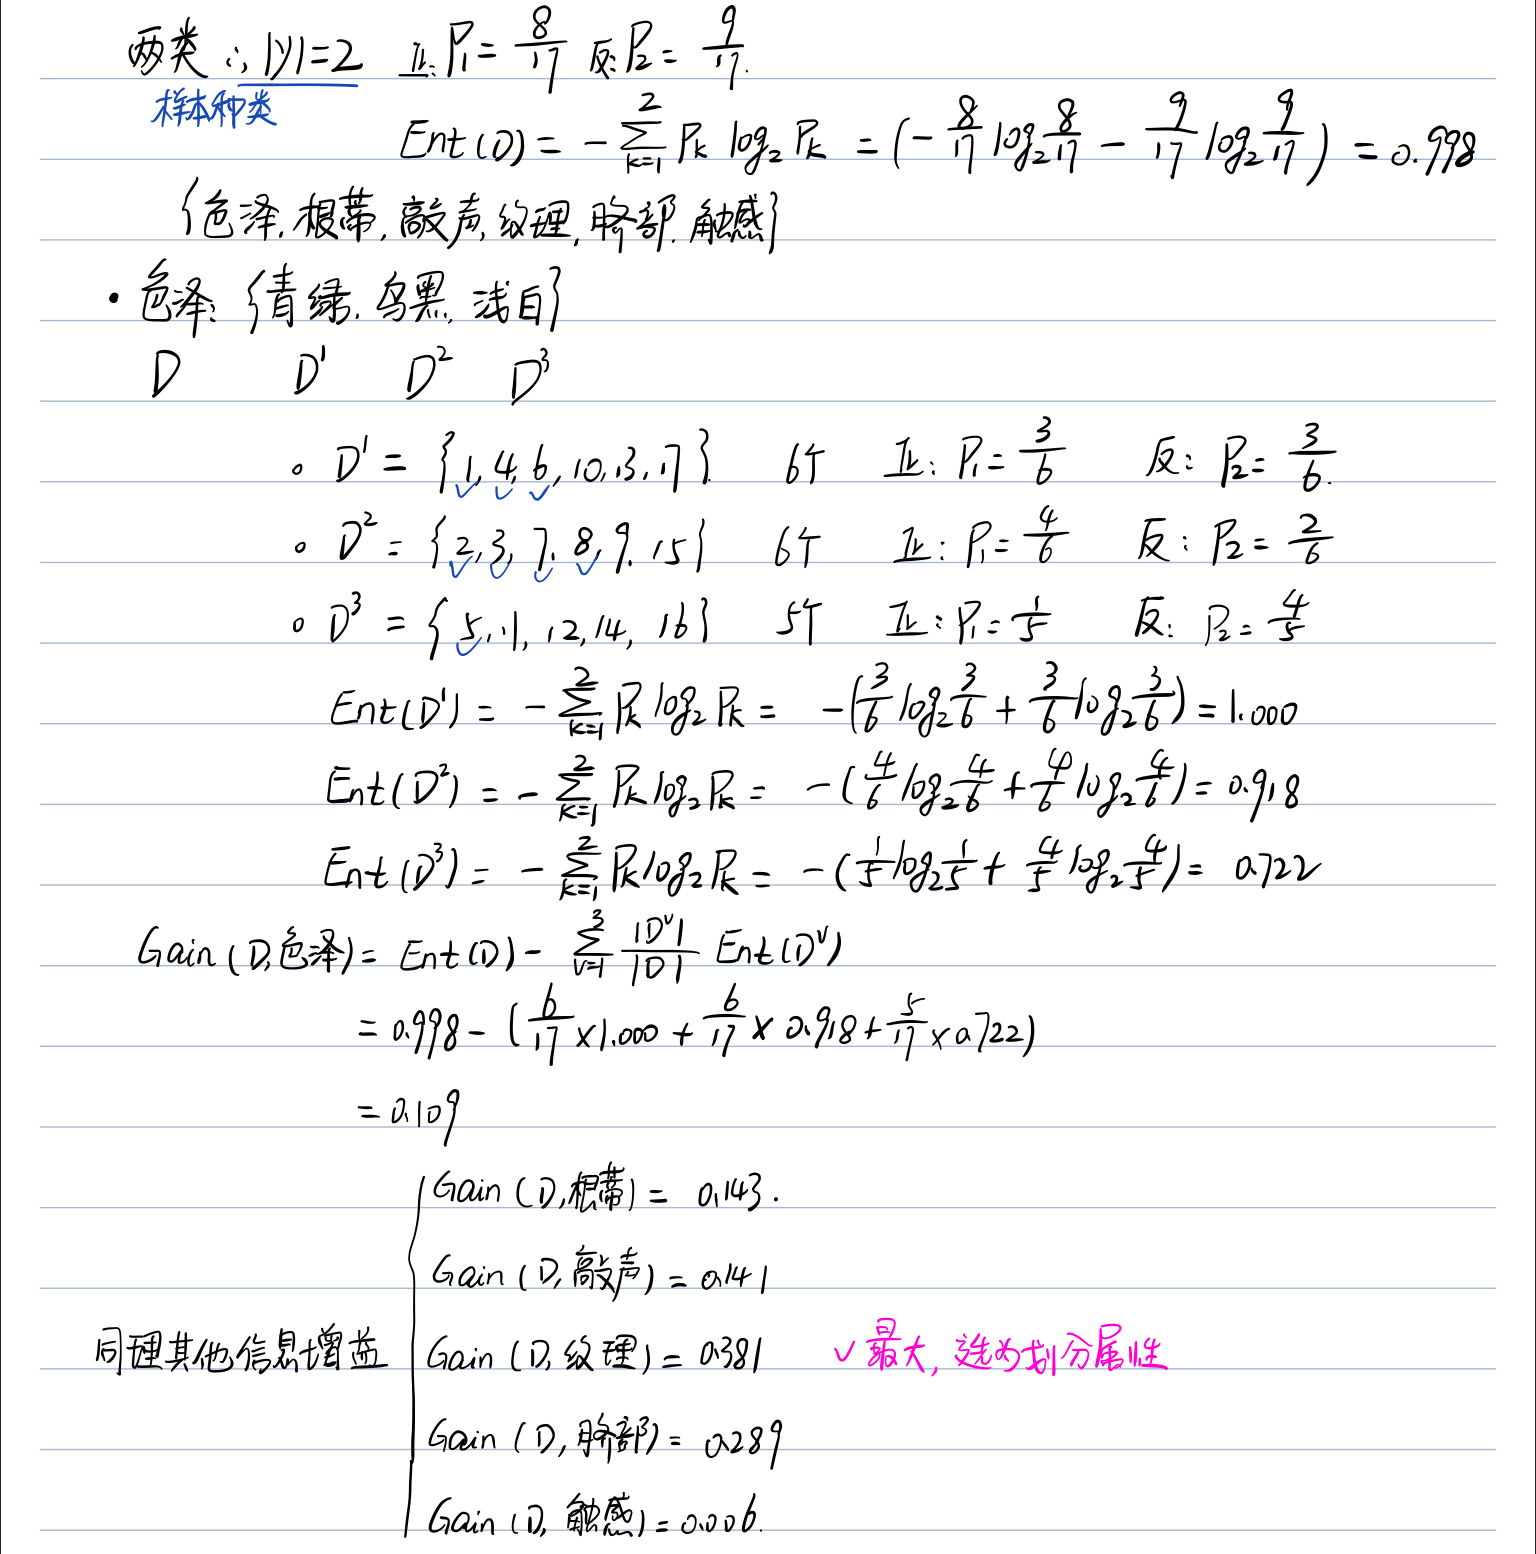 两类 ∴ |y|=2 正: P₁ = 8/17 反: P₂ = 9/17.
样本种类
Ent(D) = - ∑_{k=1}^{2} Pₖ log₂ Pₖ = (- 8/17 log₂ 8/17 - 9/17 log₂ 9/17) = 0.998
{色泽, 根蒂, 敲声, 纹理, 脐部, 触感}
· 色泽: {青绿, 乌黑, 浅白}
D D¹ D² D³
∘ D¹ = {1, 4, 6, 10, 13, 17} 6个 正: P₁ = 3/6 反: P₂ = 3/6.
∘ D² = {2, 3, 7, 8, 9, 15} 6个 正: P₁ = 4/6 反: P₂ = 2/6
∘ D³ = {5, 11, 12, 14, 16} 5个 正: P₁ = 1/5 反: P₂ = 4/5
Ent(D¹) = - ∑_{k=1}^{2} Pₖ log₂ Pₖ = -(3/6 log₂ 3/6 + 3/6 log₂ 3/6) = 1.000
Ent(D²) = - ∑_{k=1}^{2} Pₖ log₂ Pₖ = -(4/6 log₂ 4/6 + 4/6 log₂ 4/6) = 0.918
Ent(D³) = - ∑_{k=1}^{2} Pₖ log₂ Pₖ = -(1/5 log₂ 1/5 + 4/5 log₂ 4/5) = 0.722
Gain(D,色泽) = Ent(D) - ∑_{v=1}^{3} |Dᵛ|/|D| Ent(Dᵛ)
= 0.998 - (6/17 × 1.000 + 6/17 × 0.918 + 5/17 × 0.722)
= 0.109
Gain(D,根蒂) = 0.143.
Gain(D,敲声) = 0.141
同理其他信息增益 Gain(D,纹理) = 0.381 ✓最大, 选为划分属性
Gain(D,脐部) = 0.289
Gain(D,触感) = 0.006.